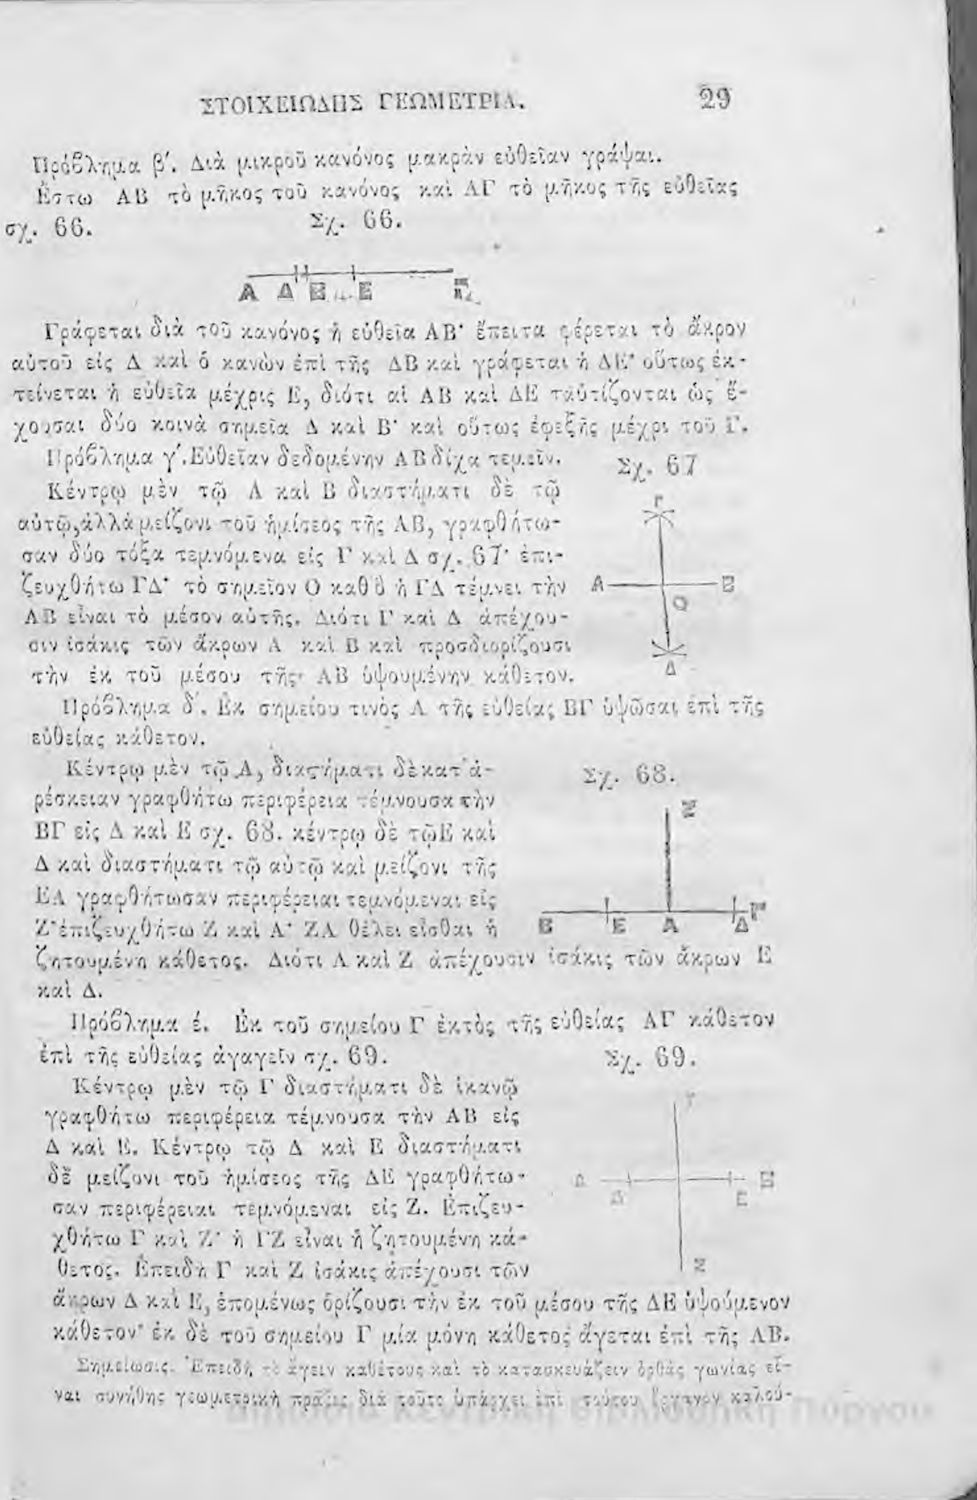 ΣΤΟΙΧΕΙΩΔΗΣ ΓΕΩΜΕΤΡΙΑ. 29
Πρόβλημα β΄. Διὰ μικροῦ κανόνος μακρὰν εὐθεῖαν γράψαι.
Ἔστω ΑΒ τὸ μῆκος τοῦ κανόνος καὶ ΑΓ τὸ μῆκος τῆς εὐθείας
σχ. 66. Σχ. 66.
Α Δ Β Ε Γ
Γράφεται διὰ τοῦ κανόνος ἡ εὐθεῖα ΑΒ· ἔπειτα φέρεται τὸ ἄκρον
αὐτοῦ εἰς Δ καὶ ὁ κανὼν ἐπὶ τῆς ΔΒ καὶ γράφεται ἡ ΔΕ· οὕτως ἐκ-
τείνεται ἡ εὐθεῖα μέχρις Ε, διότι αἱ ΑΒ καὶ ΔΕ ταὐτίζονται ὡς ἔ-
χουσαι δύο κοινὰ σημεῖα Δ καὶ Β· καὶ οὕτως ἐφεξῆς μέχρι τοῦ Γ.
Πρόβλημα γ΄. Εὐθεῖαν δεδομένην ΑΒ δίχα τεμεῖν. Σχ. 67
Κέντρῳ μὲν τῷ Α καὶ Β διαστήματι δὲ τῷ
αὐτῷ, ἀλλὰ μείζονι τοῦ ἡμίσεος τῆς ΑΒ, γραφθήτω-
σαν δύο τόξα τεμνόμενα εἰς Γ καὶ Δ σχ. 67· ἐπι-
ζευχθήτω ΓΔ· τὸ σημεῖον Ο καθ' ὃ ἡ ΓΔ τέμνει τὴν
ΑΒ εἶναι τὸ μέσον αὐτῆς. Διότι Γ καὶ Δ ἀπέχου-
σιν ἰσάκις τῶν ἄκρων Α καὶ Β καὶ προσδιορίζουσι
τὴν ἐκ τοῦ μέσου τῆς ΑΒ ὑψουμένην κάθετον.
Γ
Α Β
Ο
Δ
Πρόβλημα δ΄. Ἐκ σημείου τινὸς Α τῆς εὐθείας ΒΓ ὑψῶσαι ἐπὶ τῆς
εὐθείας κάθετον.
Κέντρῳ μὲν τῷ Α, διαστήματι δὲ κατ' ἀ-
ρέσκειαν γραφθήτω περιφέρεια τέμνουσα τὴν
ΒΓ εἰς Δ καὶ Ε σχ. 68. κέντρῳ δὲ τῷ Ε καὶ
Δ καὶ διαστήματι τῷ αὐτῷ καὶ μείζονι τῆς
ΕΑ γραφθήτωσαν περιφέρειαι τεμνόμεναι εἰς
Ζ· ἐπιζευχθήτω Ζ καὶ Α· ΖΑ θέλει εἶσθαι ἡ
Σχ. 68.
Ζ
Β Ε Α Δ Γ
ζητουμένη κάθετος. Διότι Α καὶ Ζ ἀπέχουσιν ἰσάκις τῶν ἄκρων Ε
καὶ Δ.
Πρόβλημα έ. Ἐκ τοῦ σημείου Γ ἐκτὸς τῆς εὐθείας ΑΓ κάθετον
ἐπὶ τῆς εὐθείας ἀγαγεῖν σχ. 69. Σχ. 69.
Κέντρῳ μὲν τῷ Γ διαστήματι δὲ ἱκανῷ
γραφθήτω περιφέρεια τέμνουσα τὴν ΑΒ εἰς
Δ καὶ Ε. Κέντρῳ τῷ Δ καὶ Ε διαστήματι
δὲ μείζονι τοῦ ἡμίσεος τῆς ΔΕ γραφθήτω-
σαν περιφέρειαι τεμνόμεναι εἰς Ζ. Ἐπιζευ-
χθήτω Γ καὶ Ζ· ἡ ΓΖ εἶναι ἡ ζητουμένη κά-
θετος. Ἐπειδὴ Γ καὶ Ζ ἰσάκις ἀπέχουσι τῶν
Γ
Α Β
Δ Ε
Ζ
ἄκρων Δ καὶ Ε, ἑπομένως ὁρίζουσι τὴν ἐκ τοῦ μέσου τῆς ΔΕ ὑψούμενον
κάθετον· ἐκ δὲ τοῦ σημείου Γ μία μόνη κάθετος ἄγεται ἐπὶ τῆς ΑΒ.
Σημείωσις. Ἐπειδὴ τὸ ἄγειν καθέτους καὶ τὸ κατασκευάζειν ὀρθὰς γωνίας εἶ-
ναι συνήθης γεωμετρικὴ πρᾶξις διὰ τοῦτο ὑπάρχει ἐπὶ τούτου ὄργανον καλού-
Δημόσια Κεντρική Βιβλιοθήκη Πύργου